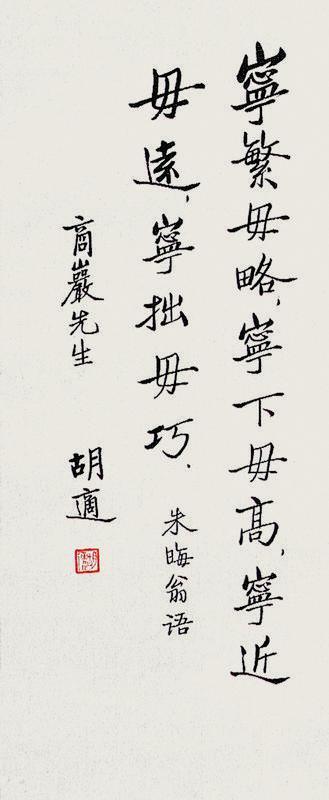 寧繁毋略，寧下毋高，寧近
毋遠，寧拙毋巧、
朱晦翁语
商巖先生
胡適